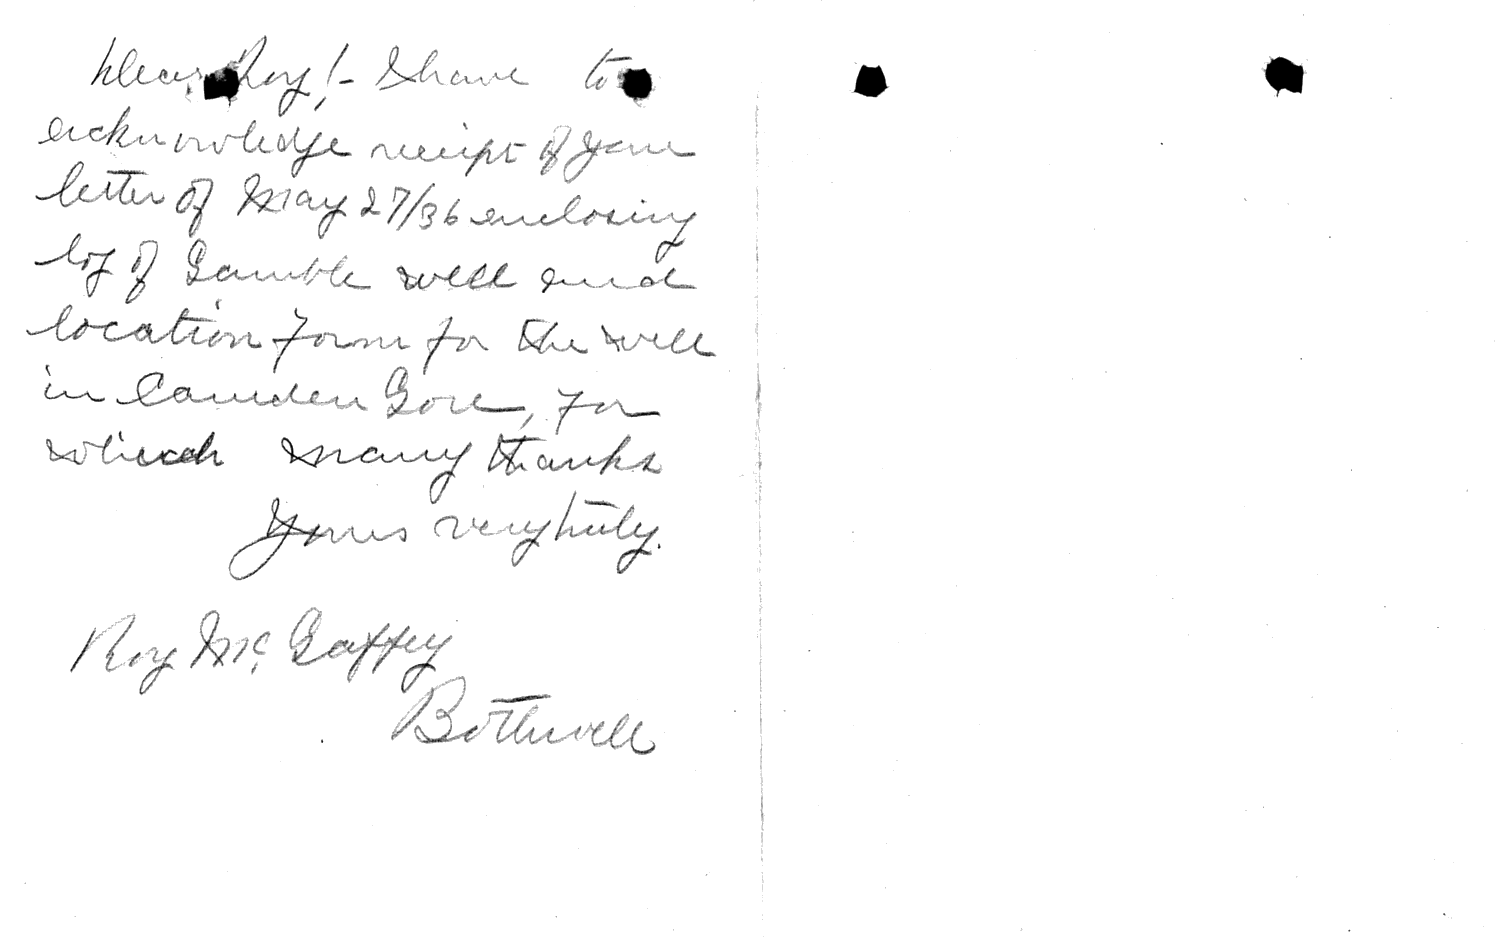 Dear Roy!- I have to
acknowledge receipt of your
letter of May 27/36 enclosing
log of Gamble well and
location form for the well
in Camden Gore, for
which many thanks
Yours very truly.
Roy McGaffey
Bothwell